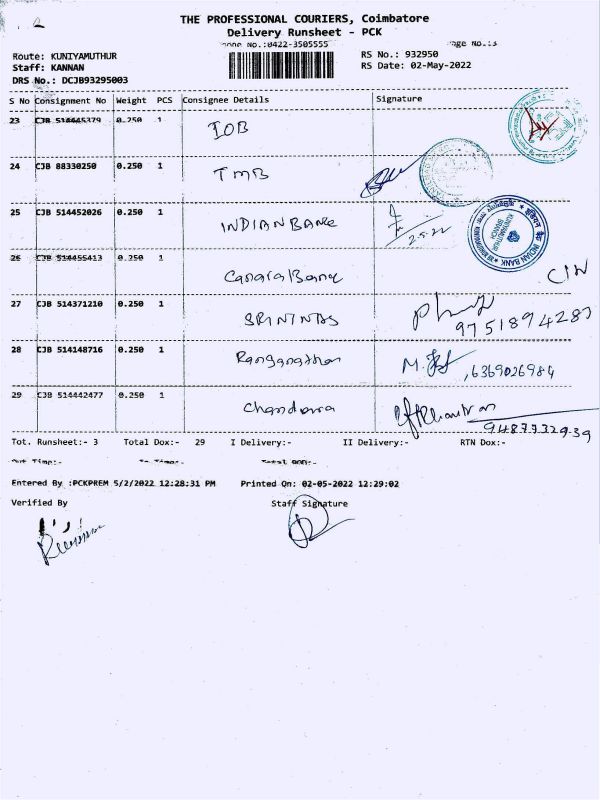 2
THE PROFESSIONAL COURIERS, Coimbatore
Delivery Runsheet - PCK
Phone No.:0422-3505555
Page No.:3
Route: KUNIYAMUTHUR
RS No.: 932950
Staff: KANNAN
RS Date: 02-May-2022
DRS No.: DCJB93295003
S No Consignment No Weight PCS Consignee Details Signature
23 CJB 514445379 0.250 1 IOB
24 CJB 88330250 0.250 1 TMB
25 CJB 514452026 0.250 1 INDIAN BANK
2.5.22
INDIAN BANK
KUNIAMUTHUR
BRANCH
26 CJB 514455413 0.250 1 Canara Bank
27 CJB 514371210 0.250 1 SRINIVAS
28 CJB 514148716 0.250 1 Ranganathan 6369026984
29 CJB 514442477 0.250 1 Chandra
Tot. Runsheet:- 3 Total Dox:- 29 I Delivery:- II Delivery:- RTN Dox:-
Out Time:- In Time:- Total OOB:-
Entered By :PCKPREM 5/2/2022 12:28:31 PM Printed On: 02-05-2022 12:29:02
Verified By Staff Signature